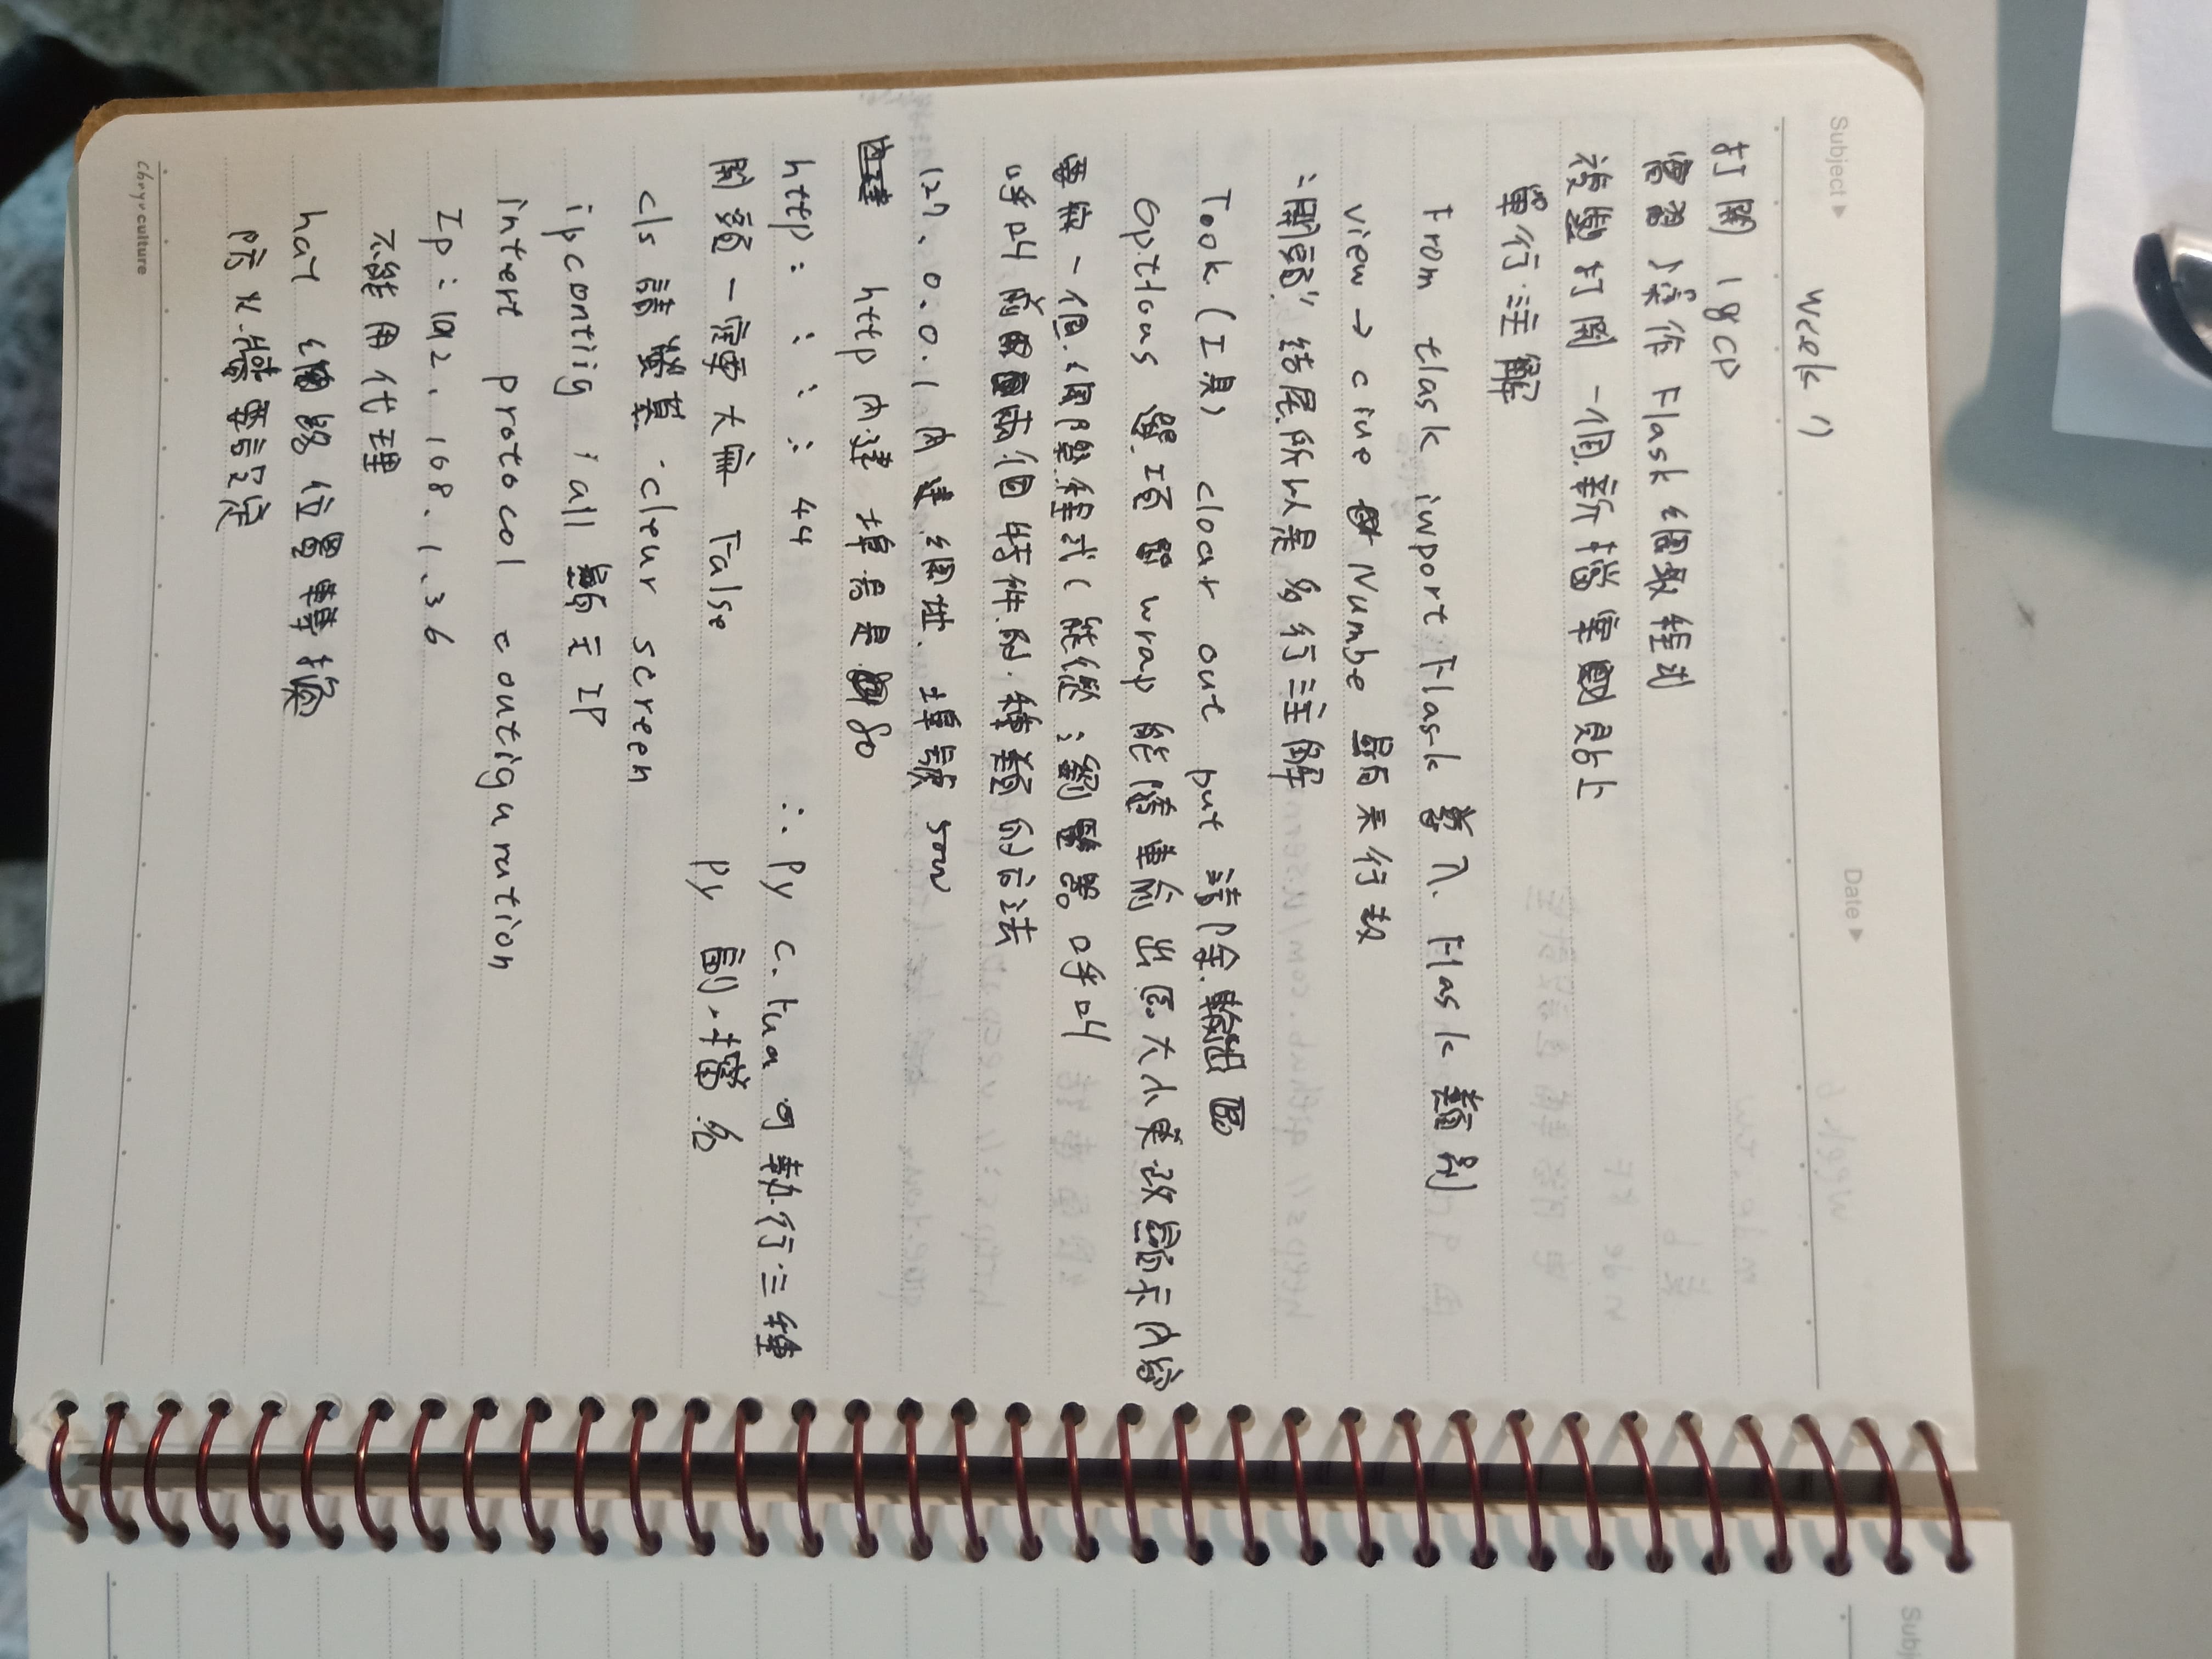 Subject ▶ week 7
Date ▶
打開 18cp
實習操作 Flask 網取程式
複製打開一個新檔案貼上
單行注解
From flask import Flask 導入 Flask 類別
view → cine Numbe 顯示行數
"開頭" 結尾所以是多行注解
Took (工具) clear out put 清除輸出區
Options 選項 wrap 能隨輸出區大小更改顯示內容
要 一個網際程式(能從瀏覽器呼叫
呼叫前兩個特件的種類的方法
127.0.0.1 內建網址 埠號 5000
http 內建 埠号是 80
http : : : : 44
∴ py c. Lua 可執行三種
開頭一定要大寫 False
py 副檔名
cls 請螢幕 clear screen
ipconfiig /all 顯示 IP
intert protocol configuration
Ip : 192.168.1.36
不能用代理
nat 網路位置轉換
防火牆要設定
culture
Subj